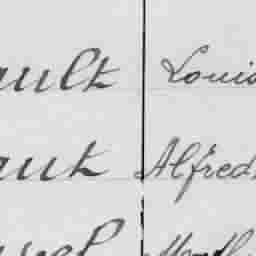 ault Louis
aut Alfred